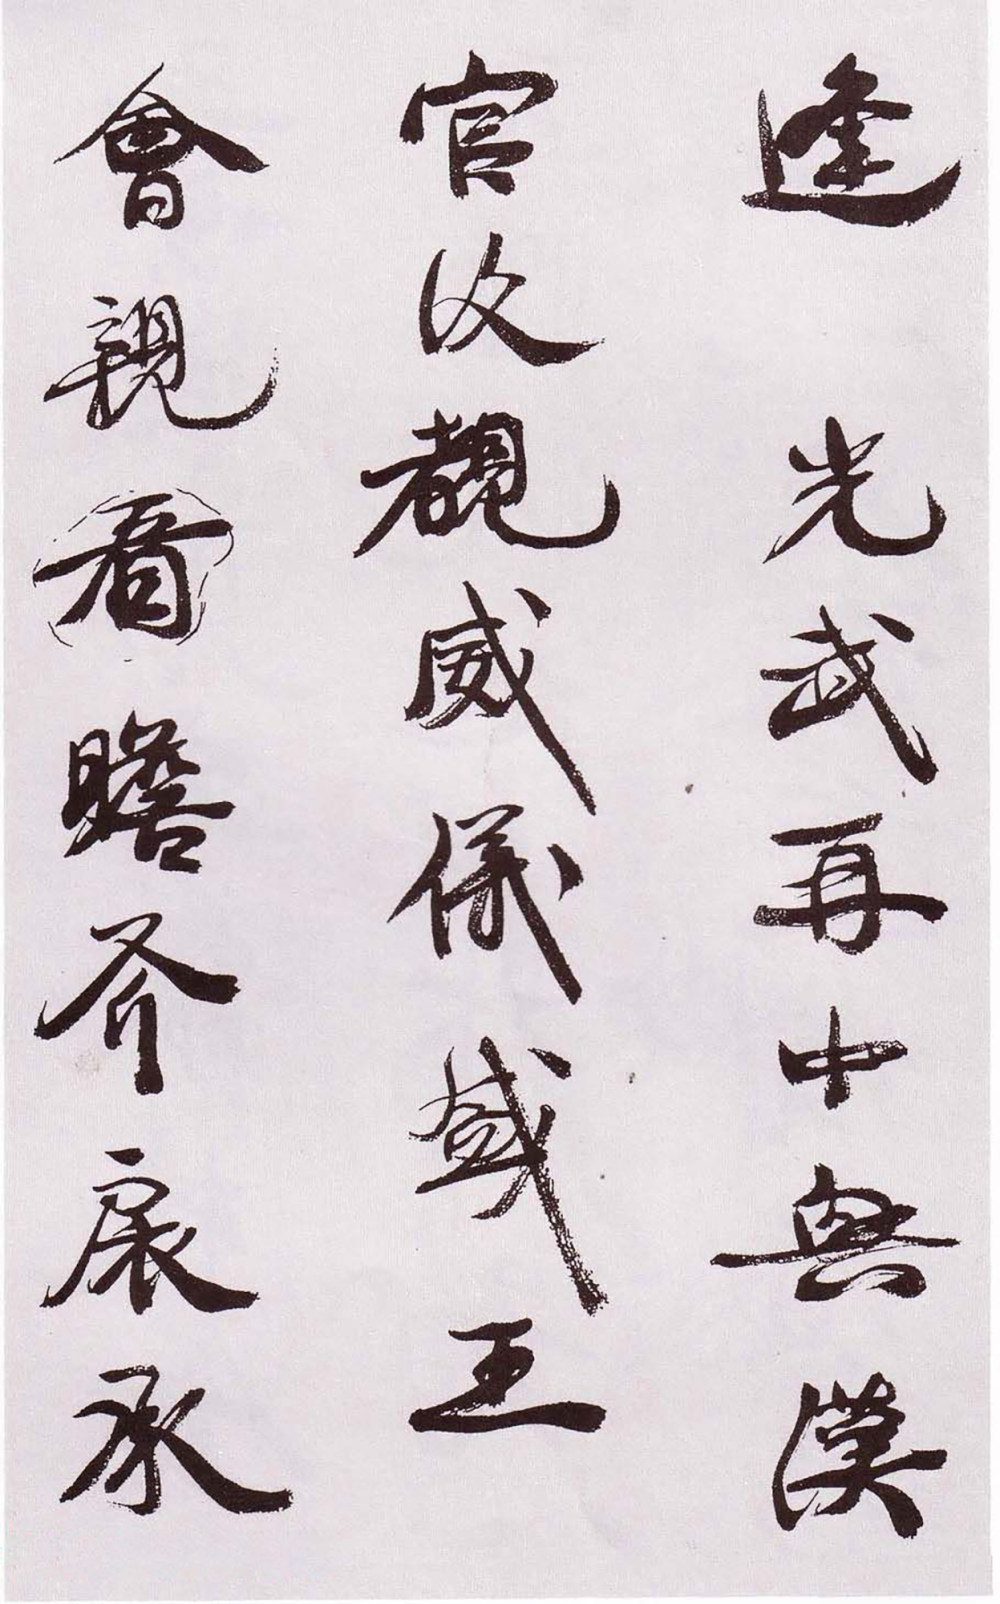 逢　光武再中興漢
官復覩威儀盛王
會親看瞻斧扆承